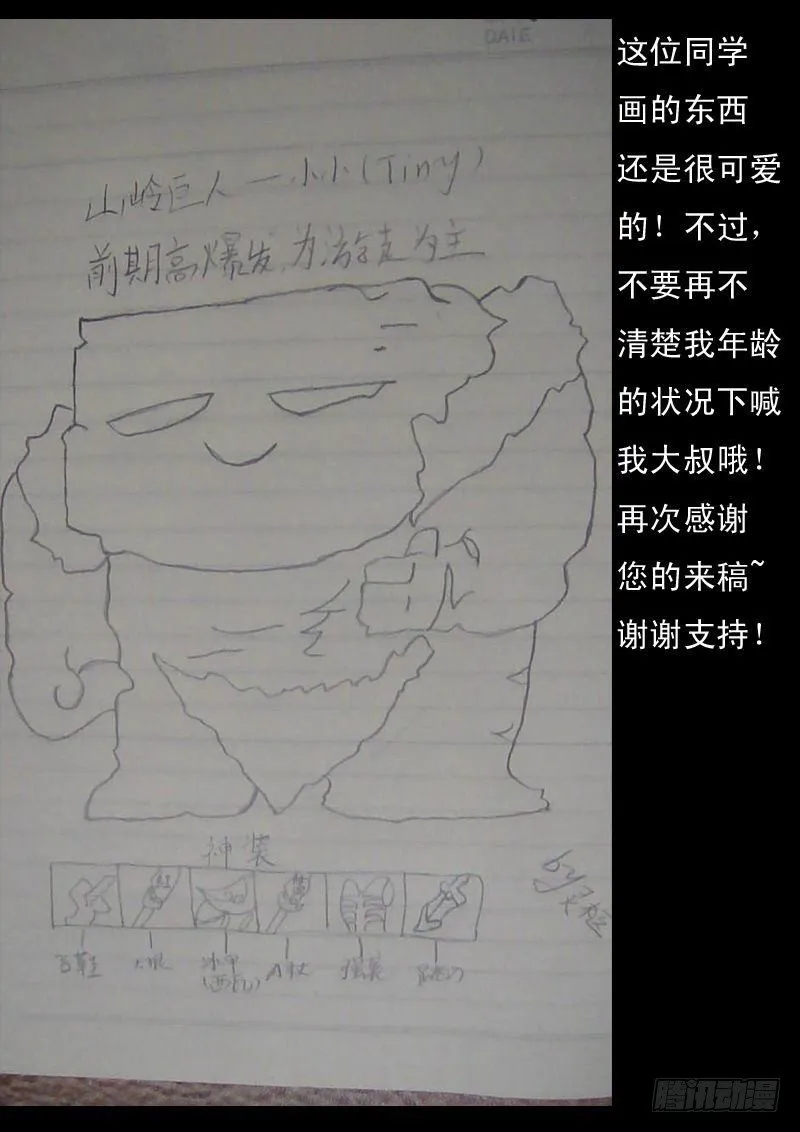 DATE
山岭巨人—小小(Tiny)
前期高爆发,为法师走为主
神装
飞鞋
冰甲
(西瓦)
A杖
强袭
跳刀
by
这位同学
画的东西
还是很可爱
的！不过，
不要再不
清楚我年龄
的状况下喊
我大叔哦！
再次感谢
您的来稿~
谢谢支持！
腾讯动漫